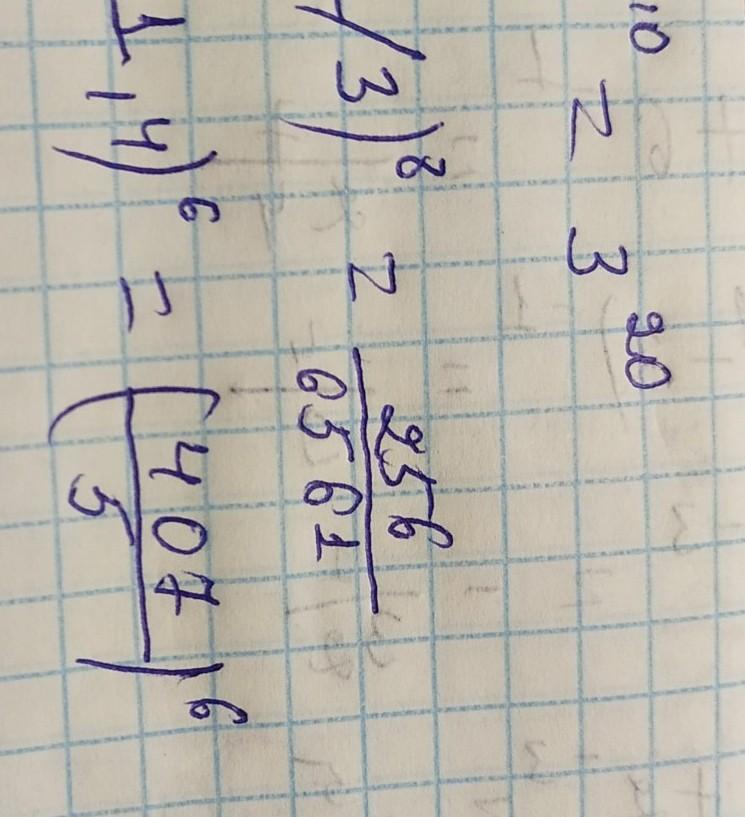 10 = 3^20
/3)^8 = 256/6561
1,4)^6 = (407/5)^6